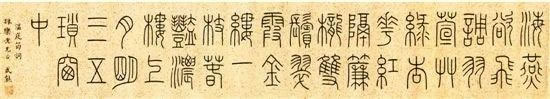 海燕
欲飛
調羽
萱艸
綠杏
花紅
隔簾
櫳雙
鬢翠
霞金
縷一
枝春
豔濃
樓上
月明
三五
瑣窗
中
溫庭筠詞
樂老兄